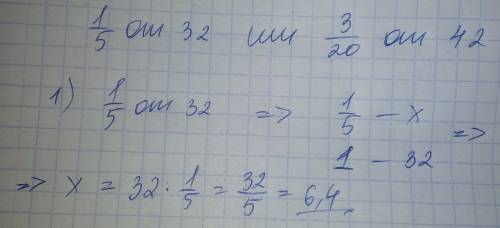 1/5 от 32 или 3/20 от 42
1) 1/5 от 32 => 1/5 – x =>
1 – 32
=> x = 32 · 1/5 = 32/5 = 6,4